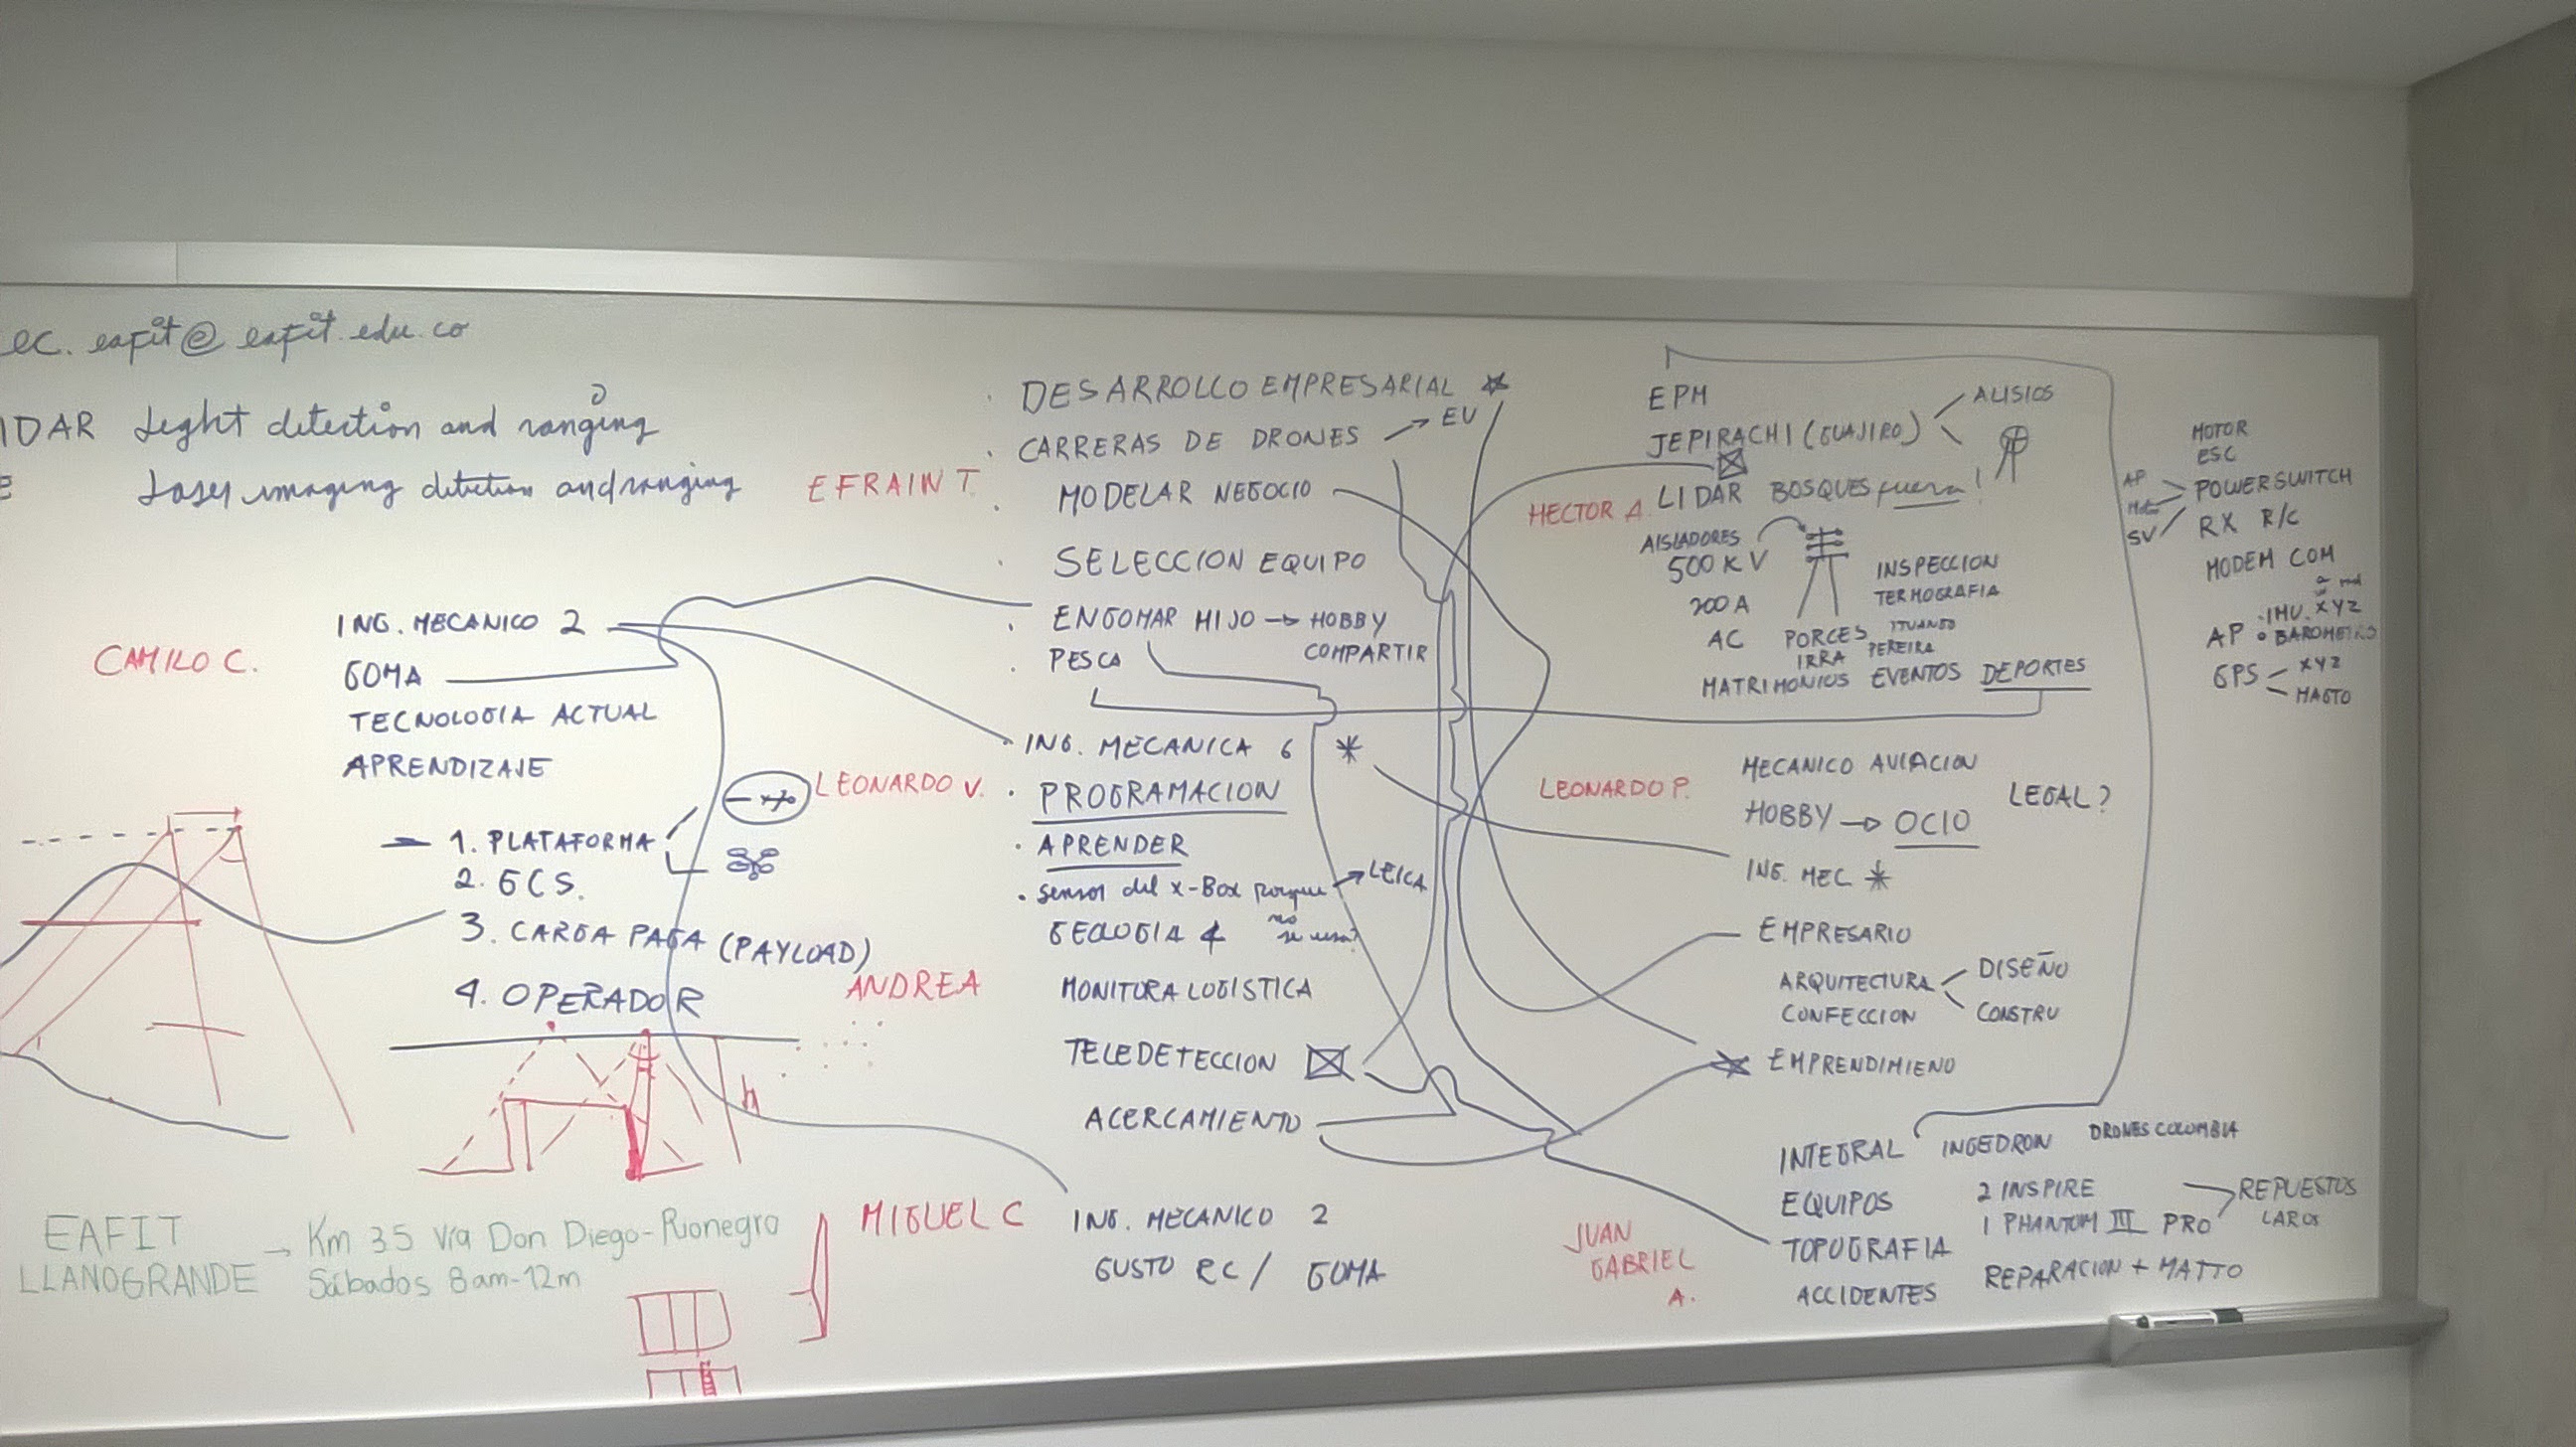 ec.eafit@eafit.edu.co
IDAR Light detection and ranging
Laser imaging detection and ranging
CAMILO C.
ING. MECANICO 2
GOMA
TECNOLOGIA ACTUAL
APRENDIZAJE
1. PLATAFORMA
2. GCS.
3. CARGA PAGA (PAYLOAD)
4. OPERADOR
h
EAFIT
LLANOGRANDE → Km 3.5 Vía Don Diego-Rionegro
Sábados 8am-12m
EFRAIN T.
DESARROLLO EMPRESARIAL
CARRERAS DE DRONES → EU
MODELAR NEGOCIO
SELECCION EQUIPO
ENGOMAR HIJO → HOBBY
COMPARTIR
PESCA
LEONARDO V.
ING. MECANICA 6 *
PROGRAMACION
APRENDER
sensor del x-Box porque → LEICA
no
se usa?
ANDREA
GEOLOGIA 4
MONITORA LOGISTICA
TELEDETECCION
ACERCAMIENTO
MIGUEL C
ING. MECANICO 2
GUSTO RC / GOMA
HECTOR A.
EPM
JEPIRACHI (GUAJIRO) ALISIOS
LIDAR BOSQUES fuera!
AISLADORES
500 KV
200 A
AC
INSPECCION
TERMOGRAFIA
PORCES ITUANGO
IRRA PEREIRA
MATRIMONIOS EVENTOS DEPORTES
LEONARDO P.
MECANICO AVIACION
HOBBY → OCIO
LEGAL?
ING. MEC *
EMPRESARIO
ARQUITECTURA DISEÑO
CONFECCION CONSTRU
EMPRENDIMIENO
JUAN
GABRIEL
A.
INTEGRAL INGEDRON DRONES COLOMBIA
EQUIPOS 2 INSPIRE
1 PHANTOM III PRO
REPUESTOS
CAROS
TOPOGRAFIA
REPARACION + MATTO
ACCIDENTES
MOTOR
ESC
AP
POWER SWITCH
SV
RX R/C
MODEM COM
AP
IMU. XYZ
BAROMETRO
GPS XYZ
MAGTO